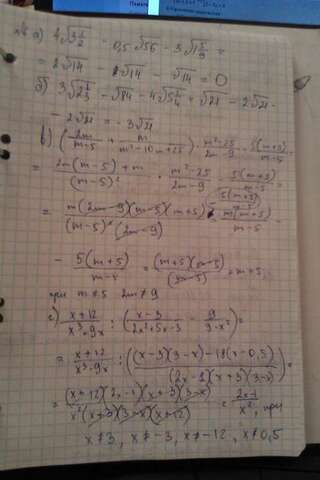 а) 4√3½ - 0,5√56 - 3√1 5/9 =
= 2√14 - √14 - √14 = 0
б) 3√2⅓ - √84 - 4√5¼ = √21 - 2√21 -
- 2√21 = -3√21
в) (2m/(m-5) + m/(m²-10m+25)) · (m²-25)/(2m-9) - 5(m+5)/(m-5)
= (2m(m-5)+m)/(m-5)² · (m²-25)/(2m-9) - 5(m+5)/(m-5) =
= m(2m-9)(m-5)(m+5)/((m-5)²(2m-9)) - 5(m+5)/(m-5) = m(m+5)/(m-5) -
- 5(m+5)/(m-5) = (m+5)(m-5)/(m-5) = m+5,
при m≠5 2m≠9
(x+12)/(x³-9x) : ((x-3)/(2x²+5x-3) - 9/(9-x²)) =
= (x+12)/(x³-9x) : ((x-3)(3-x)-18(x-0,5))/((2x-1)(x+3)(3-x)) =
= (x+12)(2x-1)(x+3)(3-x)/(x²(x+3)(3-x)(x+12)) = (2x-1)/x², при
x≠3, x≠-3, x≠-12, x≠0,5